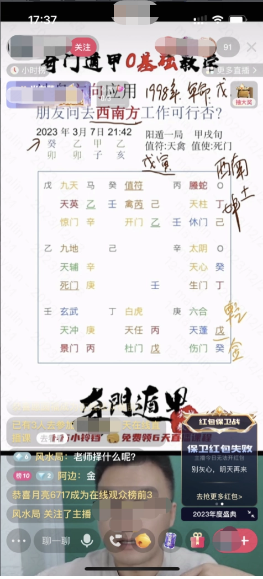 17:37
奇门遁甲0基础教学
关注
91
小时榜
更多直播
向应用 1998年
抽大奖
朋友问去西南方工作可行否?
2023 年 3月 7日 21:42 阳遁一局 甲戌旬
癸 乙 甲 乙 值符:天禽 值使:死门
卯 卯 子 亥
戊寅
西南
坤土
戊 九天 马 癸 值符 丙 螣蛇 O
天英 乙 壬 禽芮 己 天柱 丁
惊门 开门 乙 休门 己
乙 九地 己 辛 太阴 O
天辅 辛 天心 癸
死门 庚 生门 丁
壬 玄武 丁 白虎 庚 六合
天冲 庚 天任 丙 天蓬 戊
景门 丙 杜门 戊 伤门 癸
乾金
奇門遁甲
免费领6天直播课程
风水局: 老师择什么呢?
榜10 2 阿边: 金
恭喜月亮6717成为在线观众榜前3
风水局 关注了主播
红包保卫战
保卫红包失败
别灰心,明天再来
去抢更多红包>
2023年度盛典
聊一聊